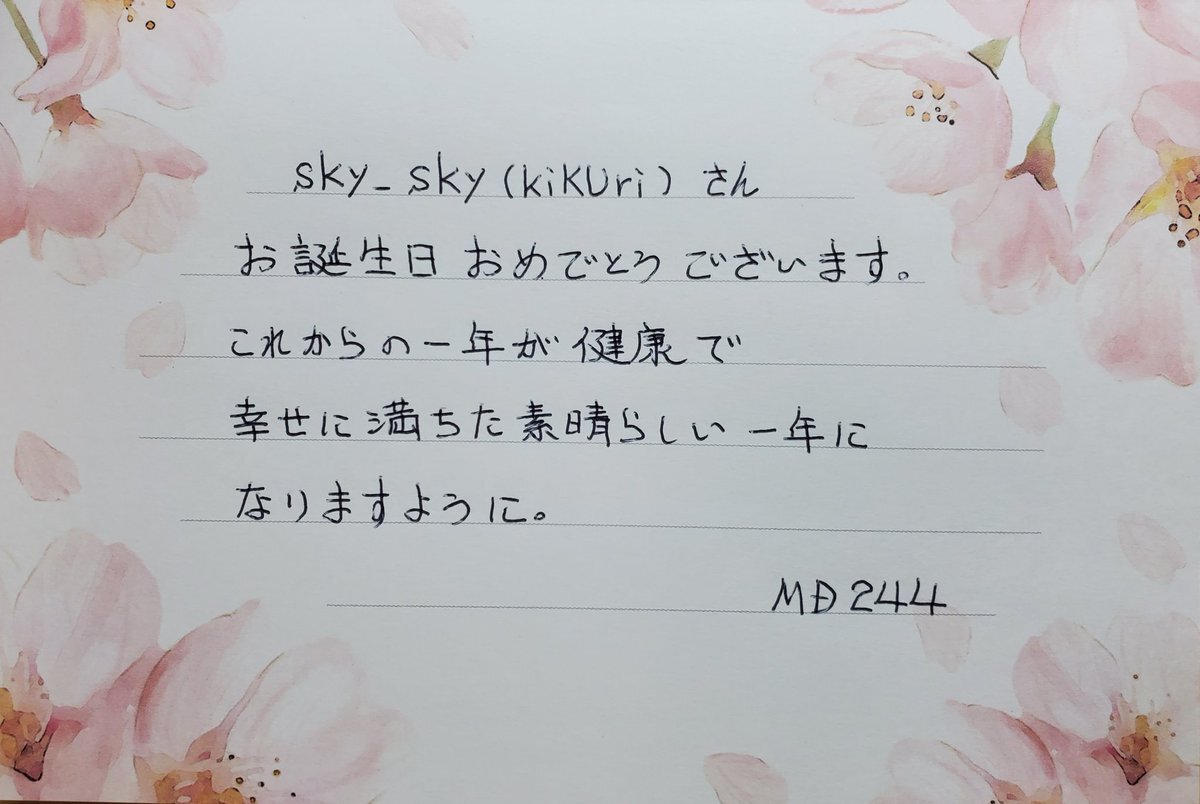 sky_sky(kiKUri)さん
お誕生日 おめでとう ございます。
これからの一年が健康で
幸せに満ちた素晴らしい一年に
なりますように。
MĐ244